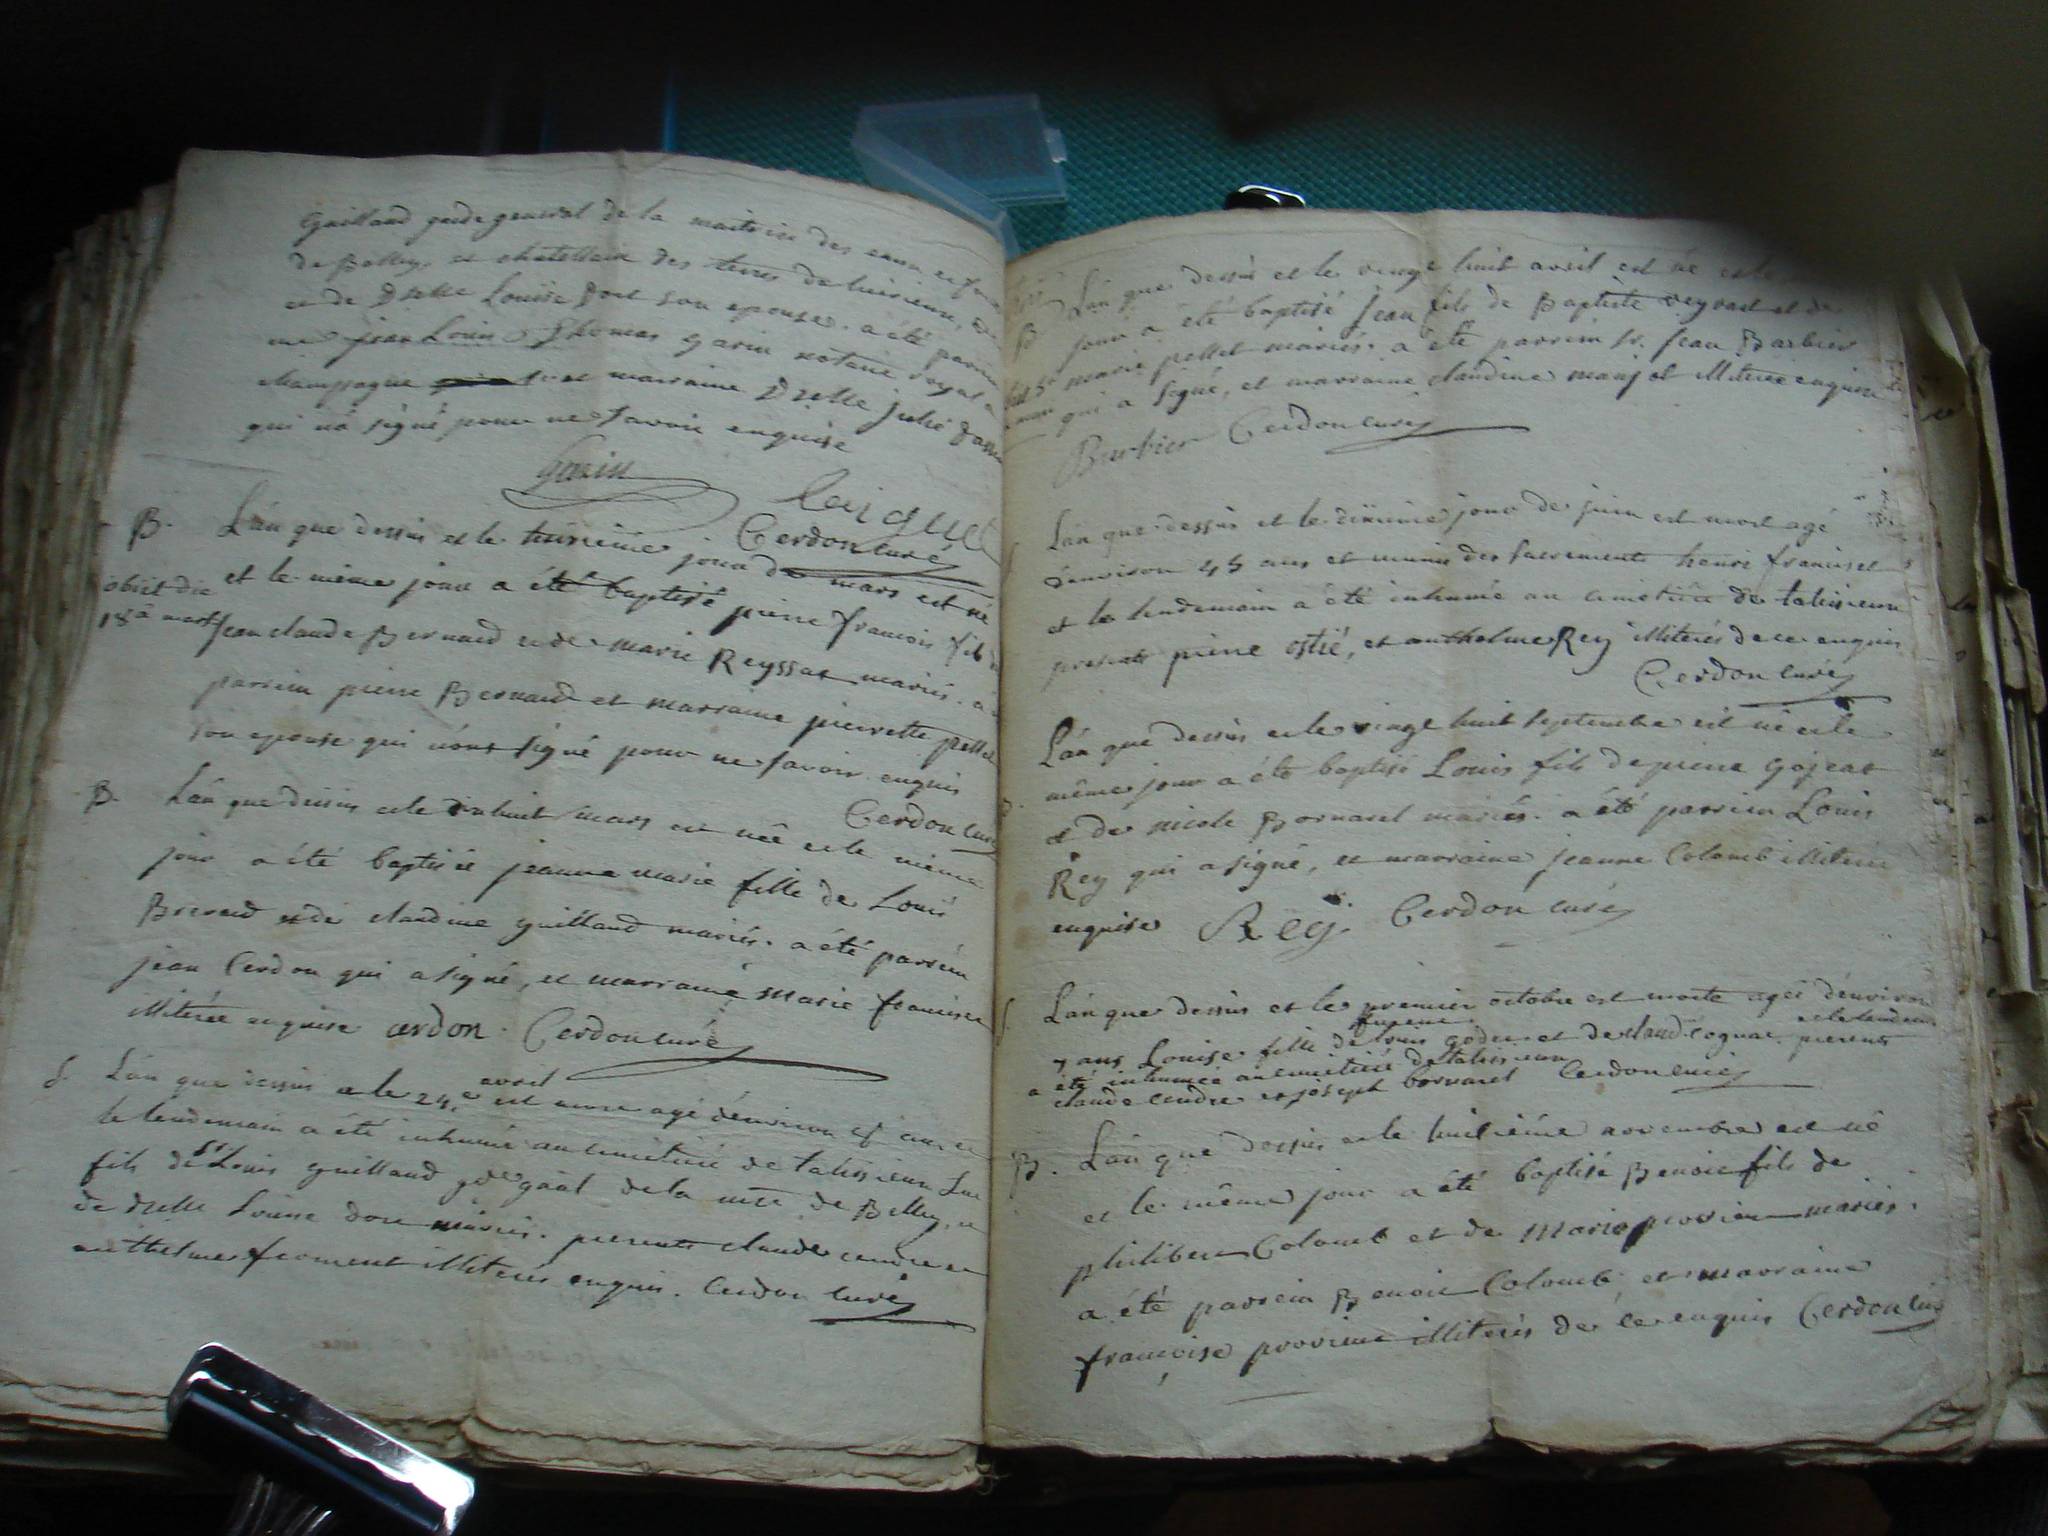 guilland garde general de la maitrise des eaux et
de Belley, et chatellain des terres de
et de Dselle Louïse Dort son epouse. a été
me jean Louis Thomas garin notaire royal
champagne et marraine Dselle julie
qui n'a signé pour ne savoir enquise
Garin
Cerdon curé
B. L'an que dessus et le troisième jour de mars est né
et le même jour a été baptisé pierre françois fils
obiit die
18a
jean claude Bernard et de marie Reyssat mariés. a
parrein pierre Bernard et marraine pierrette pellet
son epouse qui n'ont signé pour ne savoir enquis
Cerdon curé
B. L'an que dessus et le dixhuit mars est née et le même
jour a été baptisée jeanne marie fille de Louis
et de claudine guilland mariés. a été parrein
jean Cerdon qui a signé, et marraine marie
illiterée enquise cerdon. Cerdon curé
S. L'an que dessus et le 24e avril est mort agé d'environ
le lendemain a été inhumé au cimetiére de talissieu
fils de Sr Louis guilland gde gäal de la mse de Belley, et
de dselle Louise dort mariés. presents claude cendre et
anthelme froment illiterés enquis. Cerdon curé
B L'an que dessus et le vingt huit avril est né et le
jour a été baptisé jean fils de Baptiste et de
marie pellet mariés. a été parrein sr. jean Barbier
qui a signé, et marraine claudine manjot illiterée enquise
Barbier Cerdon curé
L'an que dessus et le dixieme jour de juin est mort agé
d'environ 45 ans et munis des sacrements henri
et le lendemain a été inhumé au cimetiére de talissieu
presents pierre ostié, et anthelme Rey illiterés de ce enquis
Cerdon curé
L'an que dessus et le vingt huit septembre est né et le
même jour a été baptisé Louis fils de pierre gojeat
& de nicole Bornarel mariés. a été parrein Louis
Rey qui a signé, et marraine jeanne Colomb illiterée
enquise Rey Cerdon curé
S. L'an que dessus et le premier octobre est morte agée d'environ
7 ans Louise fille de Louis et de claud. Cognat. presents
et le lendem
a été inhumée au cimetiére de talissieu
claude cendre et joseph bornarel Cerdon curé
B. L'an que dessus et le huitiéme novembre est né
et le même jour a été baptisé Benoit fils de
philibert Colomb et de marie mariés.
a été parrein Benoit Colomb, et marraine
françoise illiterés de ce enquis Cerdon curé